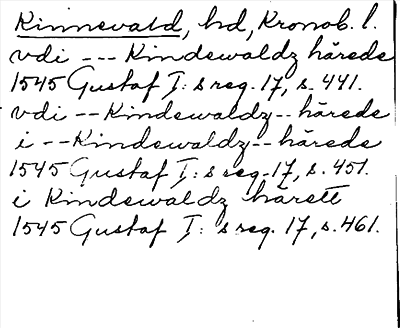 Kinnevald, hd, Kronob. l.
vdi --- Kindewaldz härede
1545 Gustaf I: s reg. 17, s. 441.
vdi -- Kindewaldz -- härede
i -- Kindewaldz -- härede
1545 Gustaf I: s reg. 17, s. 451.
i Kindewaldz härett
1545 Gustaf I: s reg. 17, s. 461.